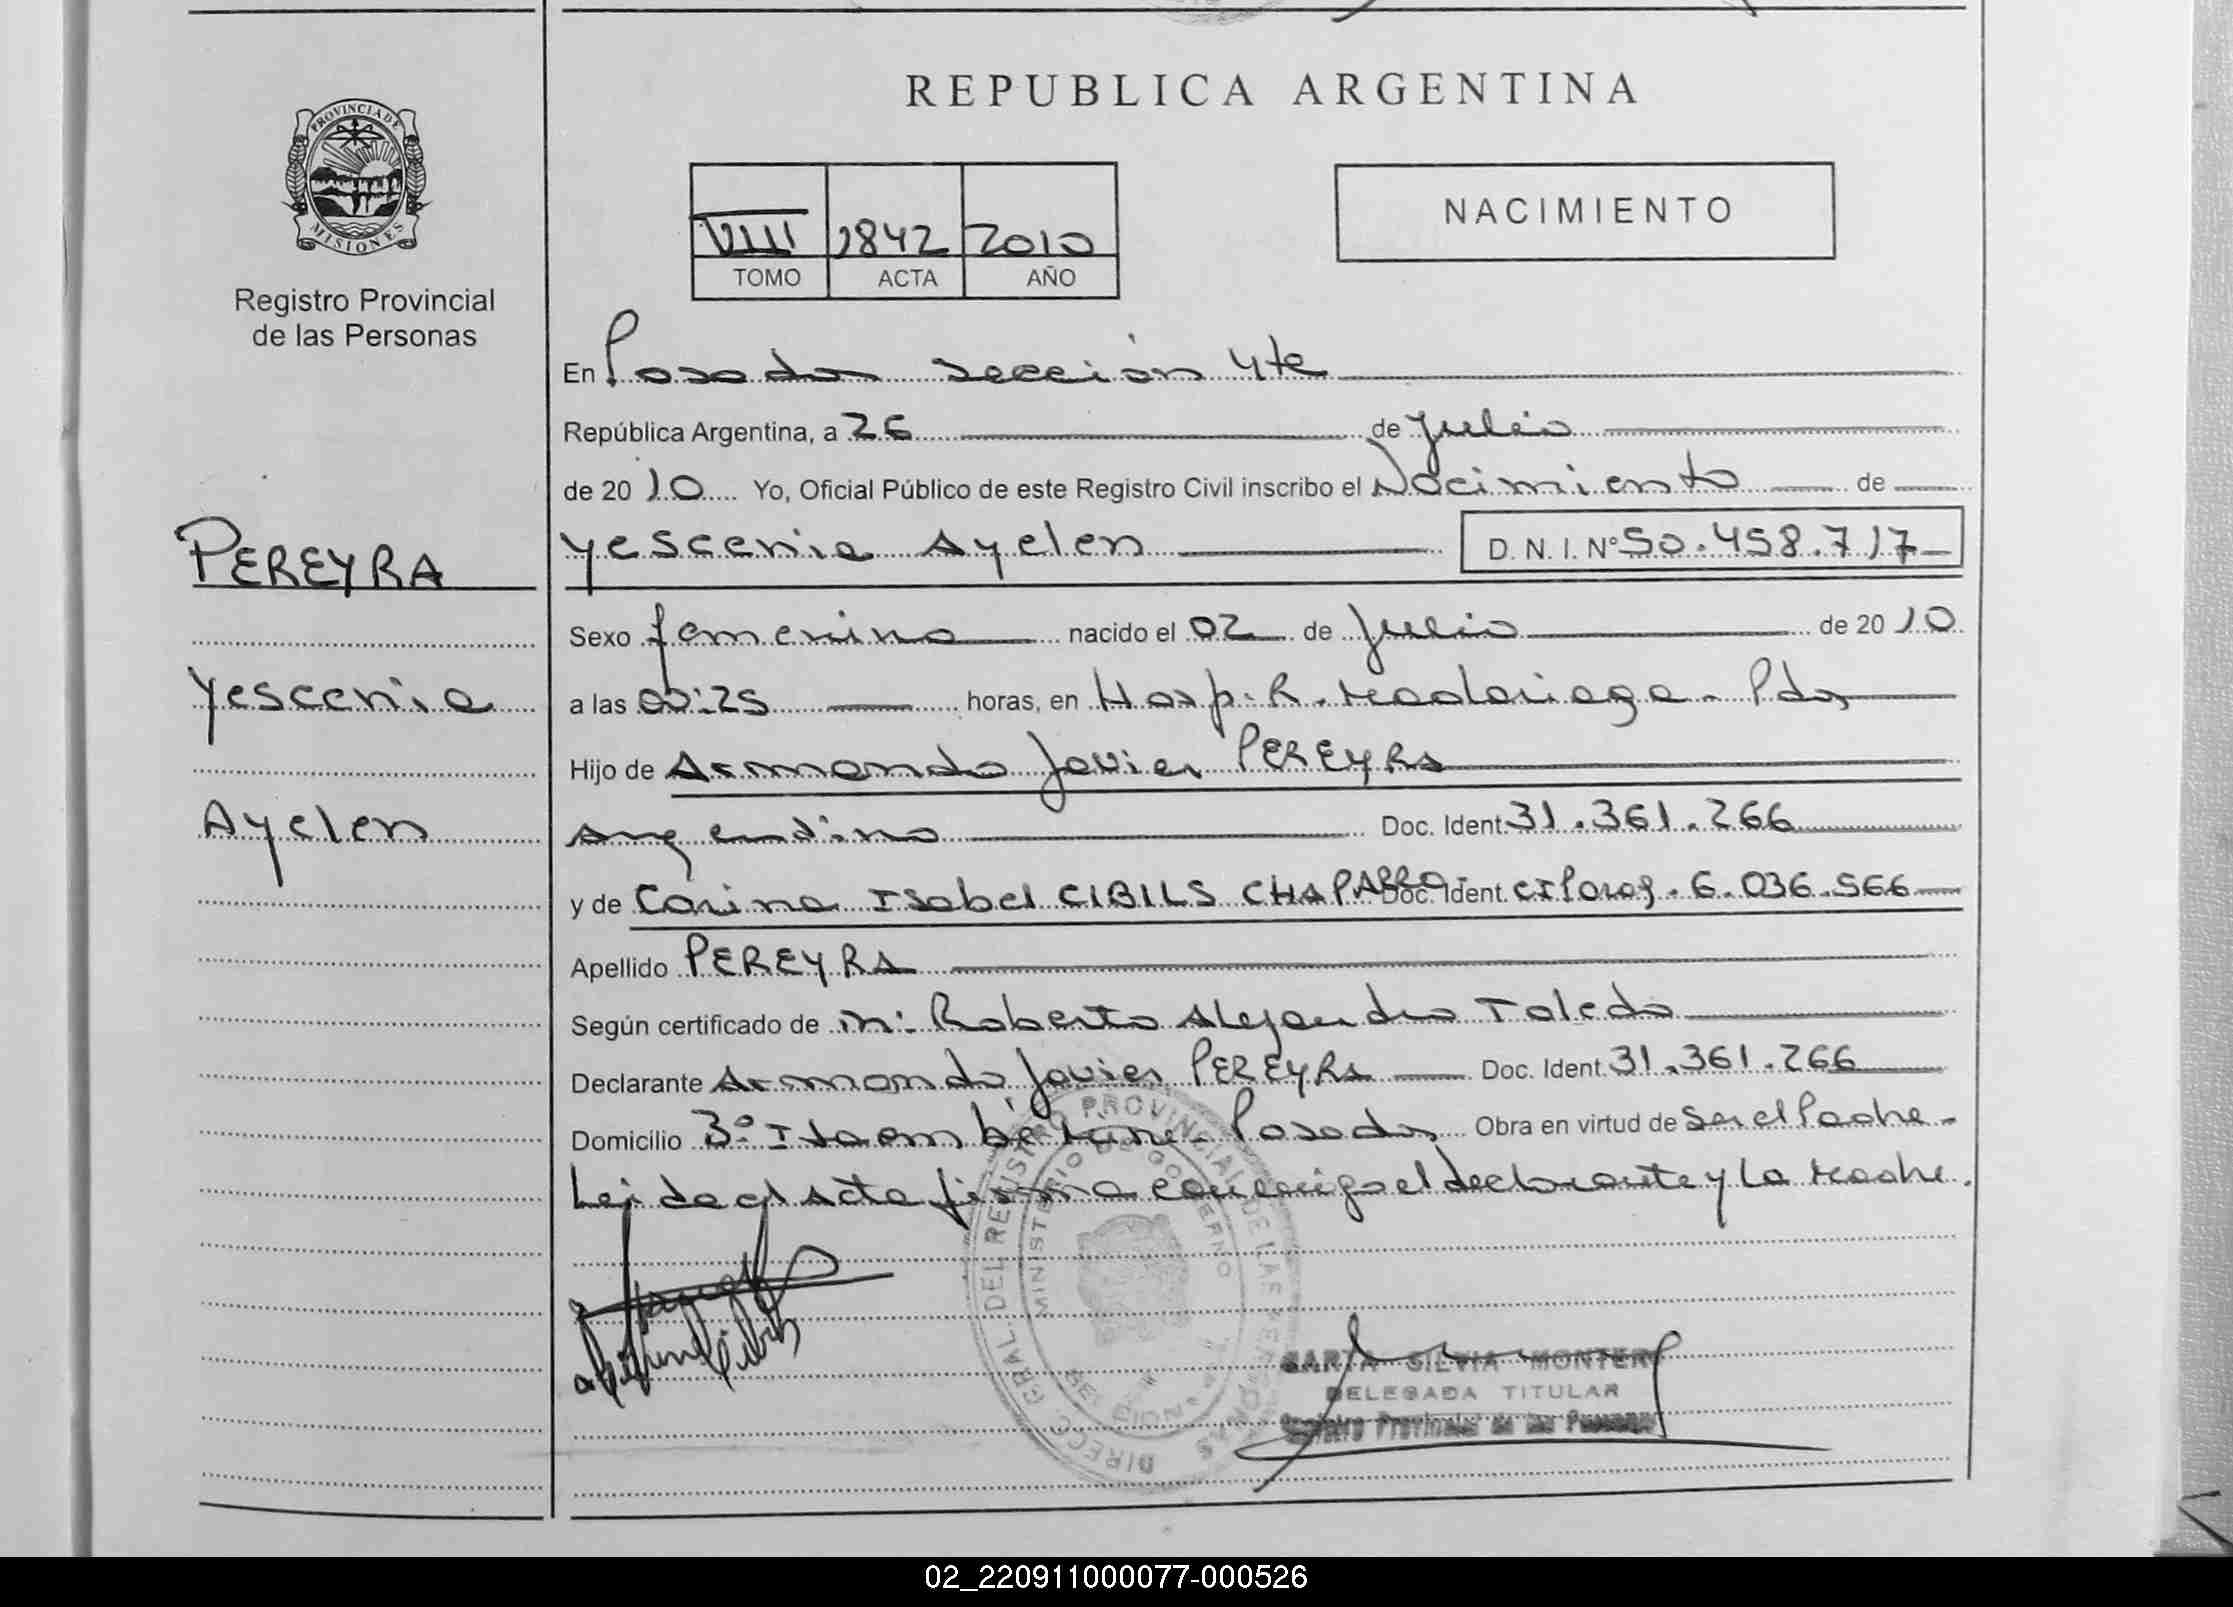 REPUBLICA ARGENTINA
PROVINCIA DE MISIONES
Registro Provincial
de las Personas
NACIMIENTO
VIII 1842 2010
TOMO ACTA AÑO
En Posadas sección 4ta
República Argentina, a 26 de Julio
de 2010 Yo, Oficial Público de este Registro Civil inscribo el Nacimiento de
PEREYRA
Yescenia Ayelen D. N. I. Nº 50.458.717
Sexo femenino nacido el 02 de Julio de 2010
Yescenia
a las 00:25 horas, en Hosp. R. Madariaga - Pdas
Hijo de Armando Javier PEREYRA
Ayelen
Argentino Doc. Ident. 31.361.266
y de Carina Isabel CIBILS CHAPARRO Doc. Ident. 6.036.566
Apellido PEREYRA
Según certificado de Roberto Alejandro Toledo
Declarante Armando Javier PEREYRA Doc. Ident. 31.361.266
Domicilio Itaembé Posadas Obra en virtud de Ser el Padre -
Leida el Acta firma conmigo el declarante y La Madre.
DIRECC. GRAL. DEL REGISTRO PROVINCIAL DE LAS PERSONAS
MINISTERIO DE GOBIERNO
SILVIA MONTERO
DELEGADA TITULAR
Registro Provincial de las Personas
02_220911000077-000526